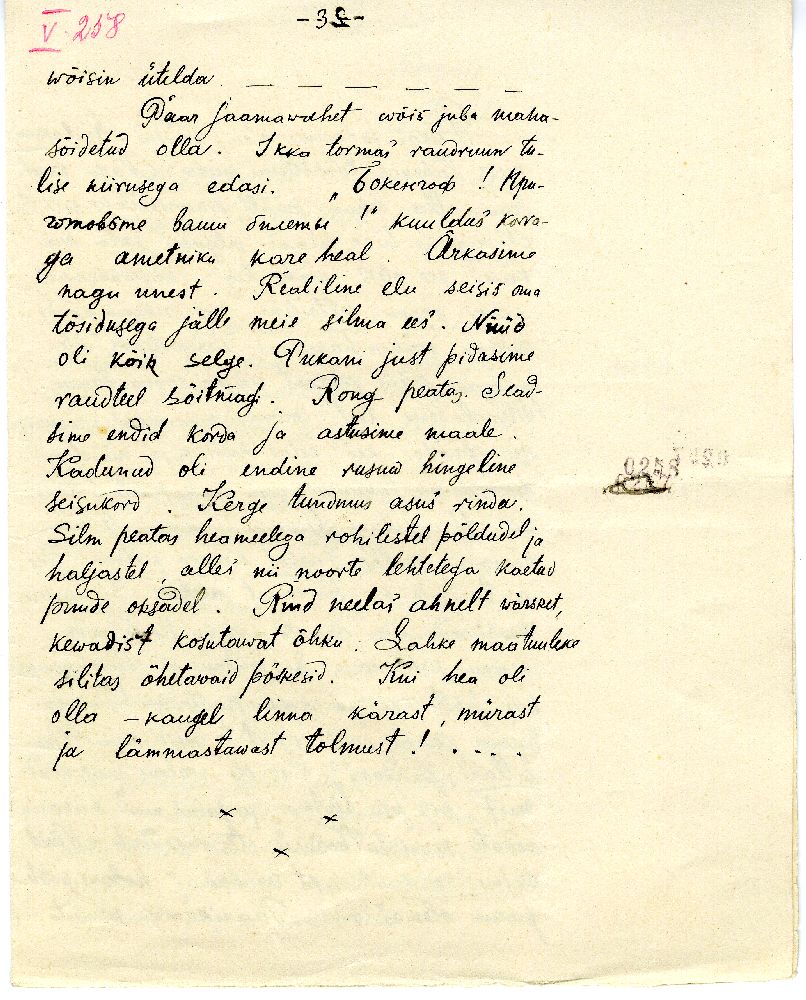 V. 258
-32-
wõisin ütelda — — — — — —
Paar jaamawahet wõis juba maha-
sõidetud olla. Ikka tormas raudruun tu-
lise kiirusega edasi. „Бокенгоф! При-
готовьте ваши билеты!" kuuldus korra-
ga ametniku kare heal. Ärkasime
nagu unest. Realiline elu seisis oma
tõsidusega jälle meie silma ees. Nüüd
oli kõik selge. Pukani just pidasime
raudteel sõitmagi. Rong peatas. Sead-
sime endid korda ja astusime maale.
Kadunud oli endine rusuw hingeline
seisukord. Kerge tundmus asus rinda.
Silm peatas heameelega rohilistel põldudel ja
haljastel, alles nii noorte lehtetega kaetud
puude oksadel. Rind neelas ahnelt wärsket,
kewadist kosutawat õhku. Lahke maatuuleke
silitas õhetawaid põskesid. Kui hea oli
olla – kaugel linna kärast, mürast
ja lämmastawast tolmust! . . . .
x x
x